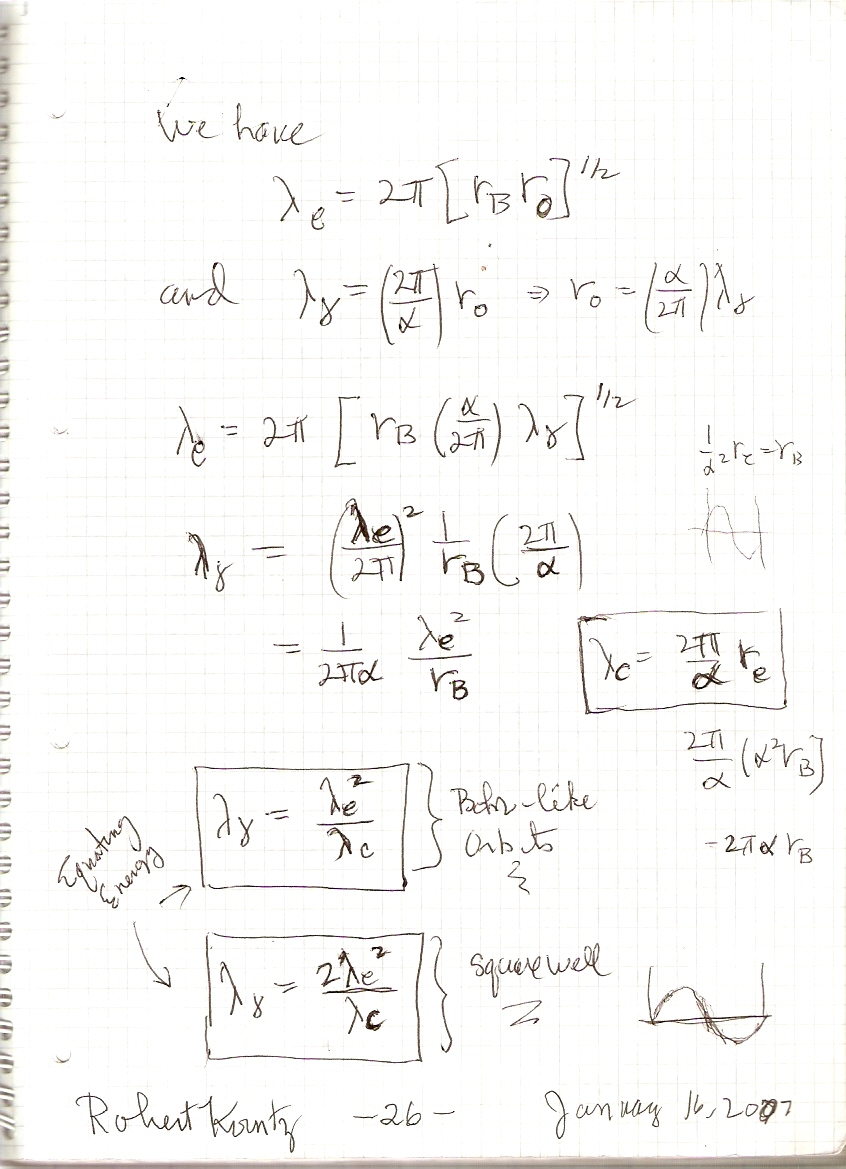 We have
λe = 2π [rB ro]^1/2
and λγ = (2π/α) ro ⇒ ro = (α/2π) λγ
λe = 2π [rB (α/2π) λγ]^1/2
1/α² re = rB
λγ = (λe/2π)² 1/rB (2π/α)
= 1/2πα λe²/rB
λc = 2π/α re
2π/α (α² rB)
= 2πα rB
λγ = λe²/λc } Bohr-like
Orbits
Equating
Energy
λγ = 2λe²/λc } Square well
Robert Kountz - 26 - January 16, 2007